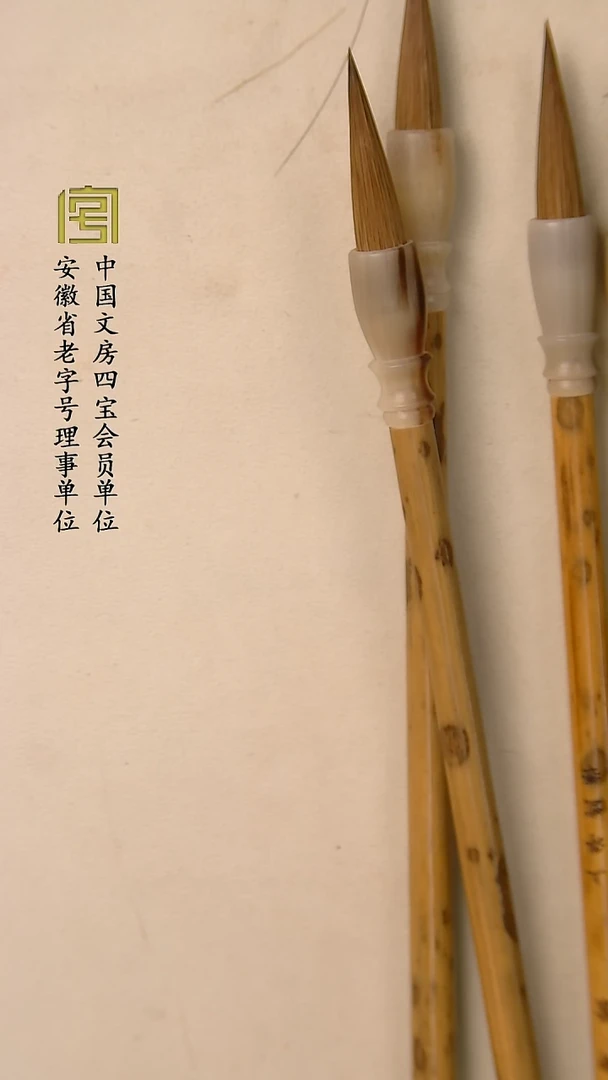 中国文房四宝会员单位
安徽省老字号理事单位